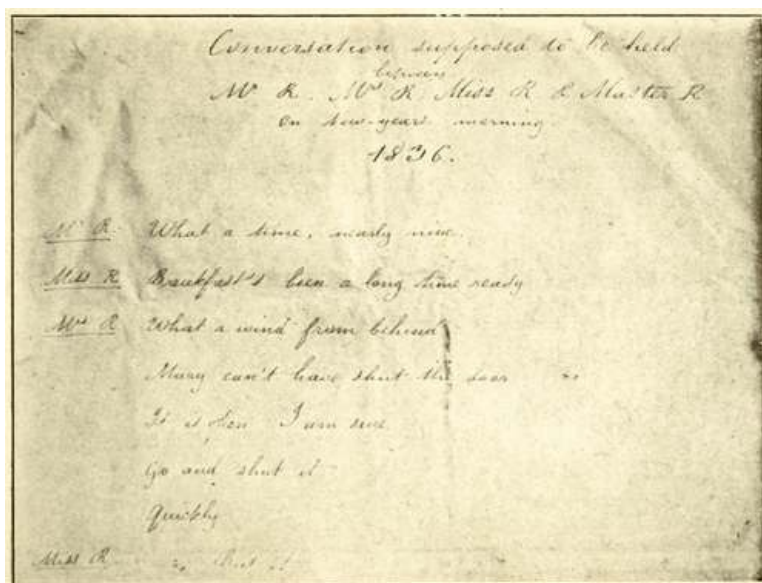 Conversation supposed to be held
between
Mr R. Mrs R Miss R & Master R
on new-years morning
1836.
Mr R. What a time, nearly nine.
Miss R Breakfast's been a long time ready
Mrs R What a wind from behind
Mary can't have shut the door
It is open I am sure
Go and shut it
Quickly
Miss R. But it